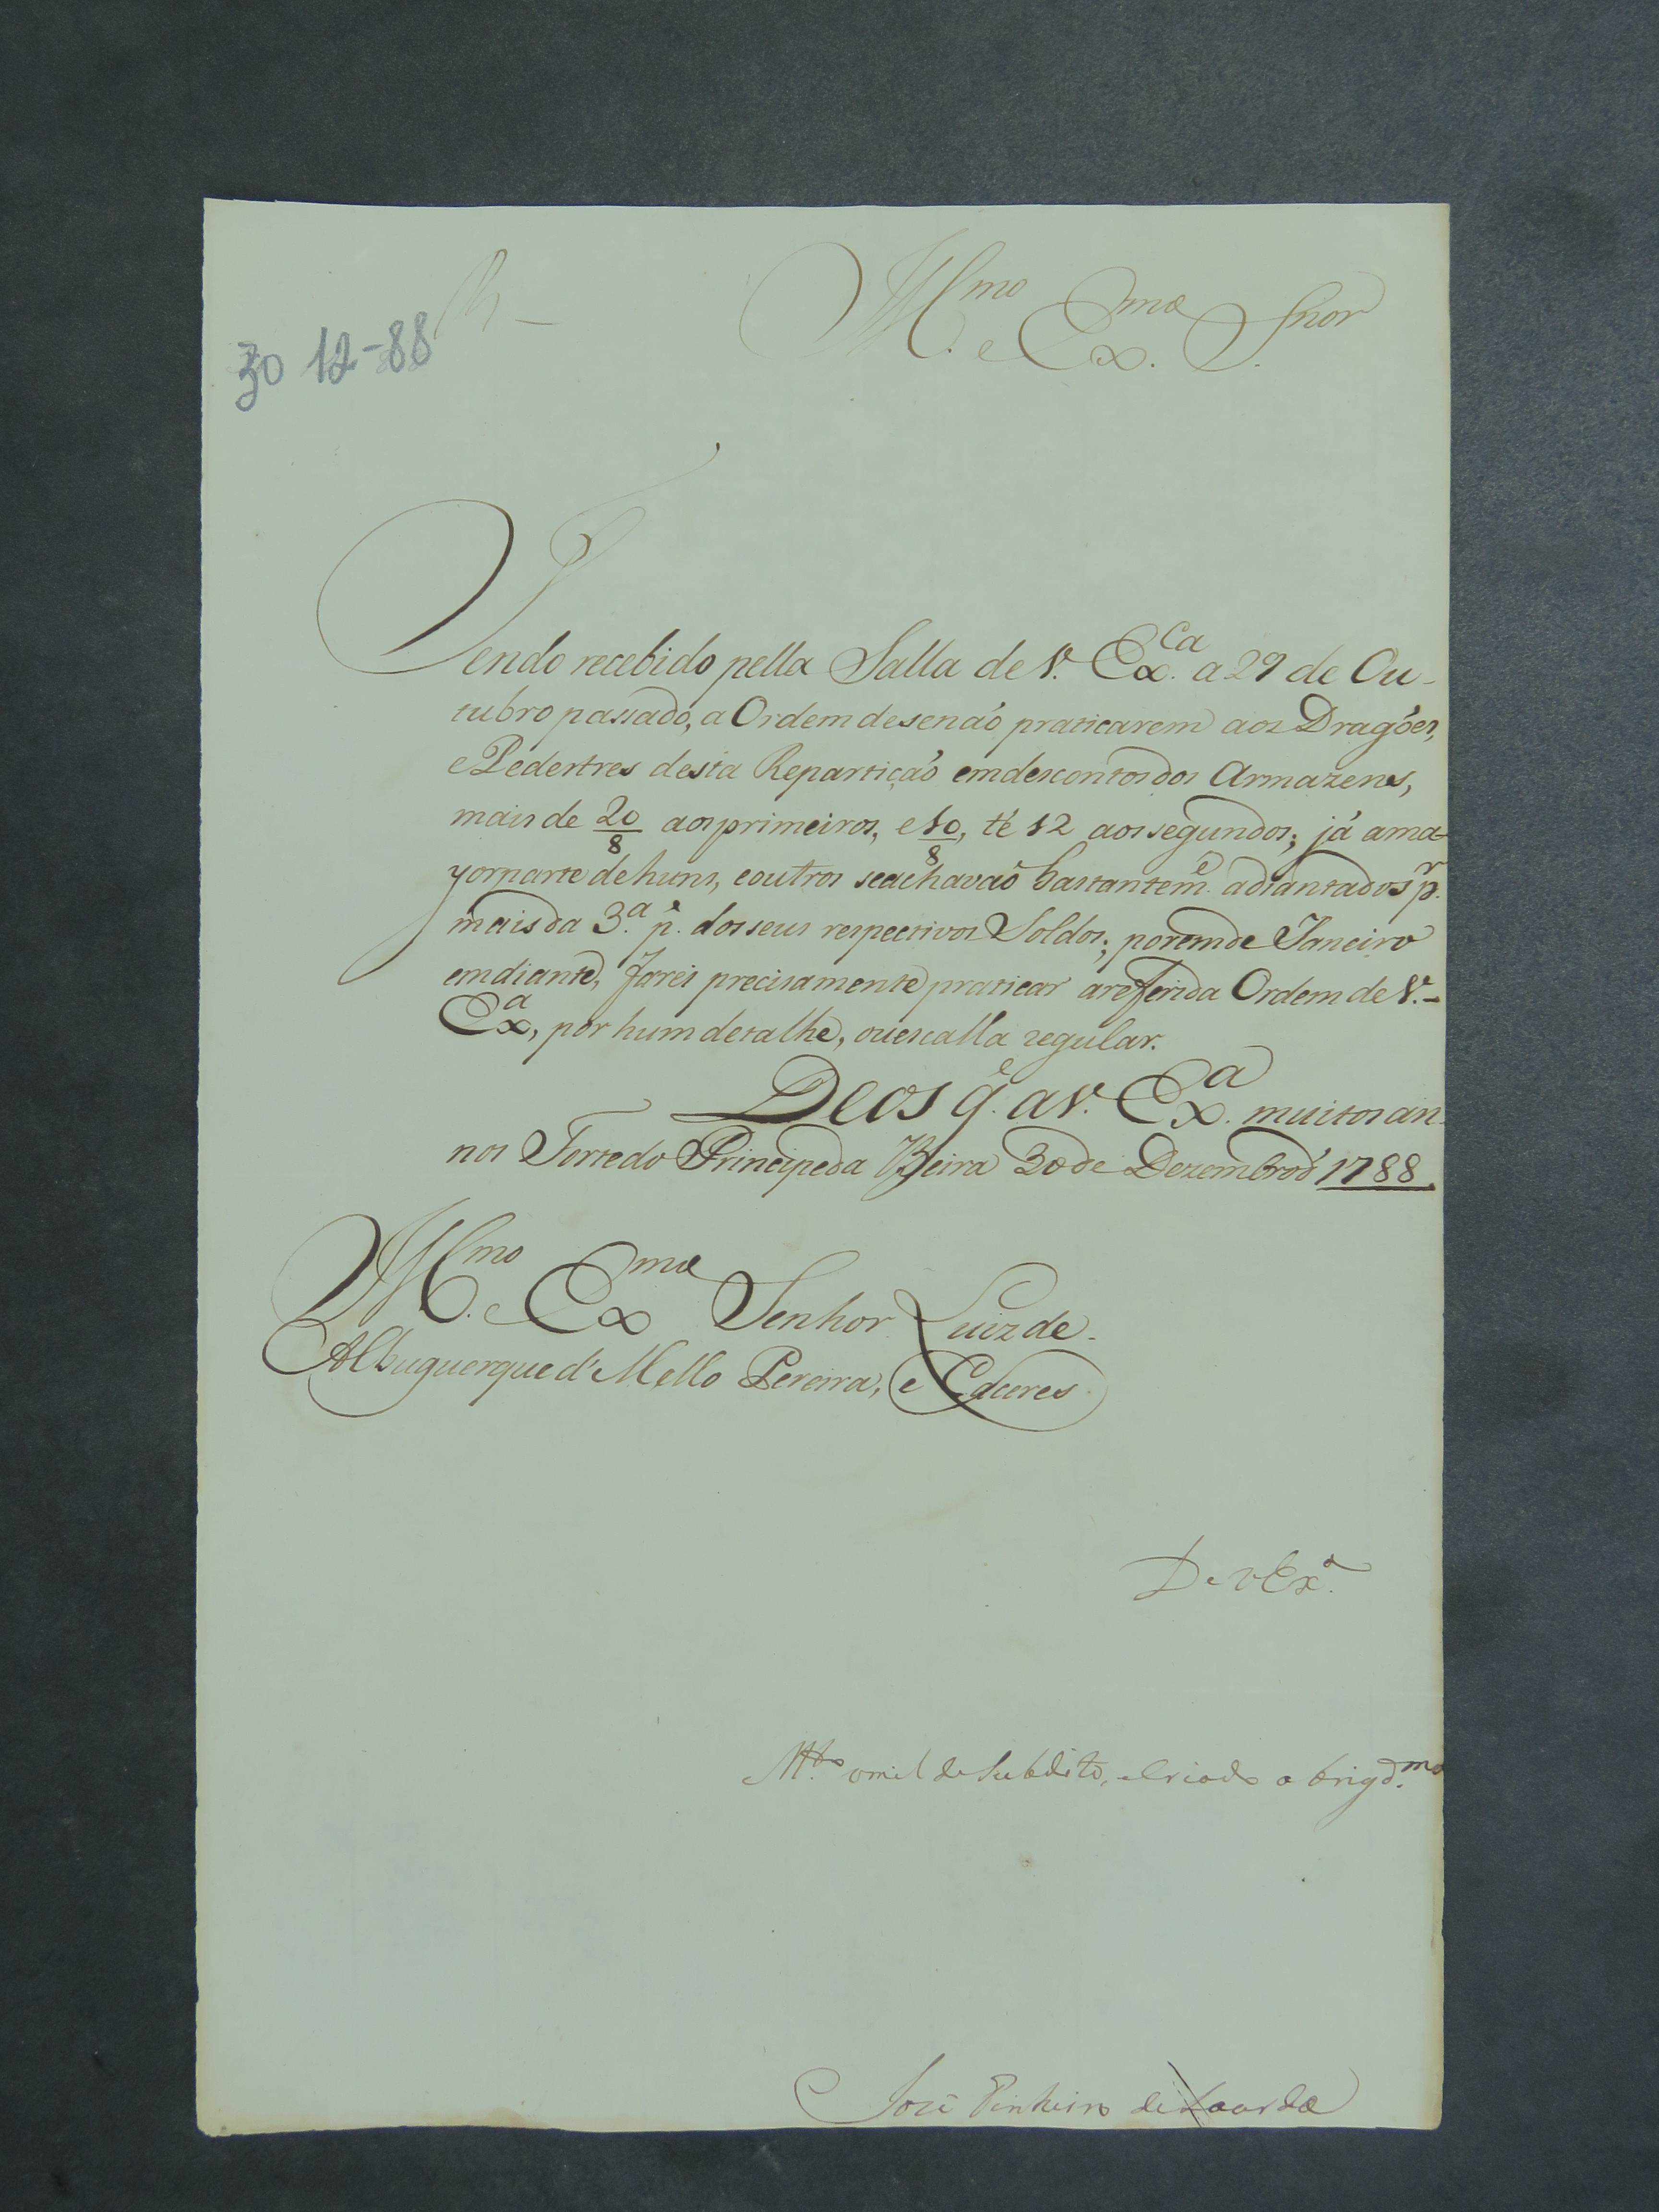 30 12-88
Illmo. e Exmo. Snor
Tendo recebido pella Salla de V. Exca. a 29 de Ou-
tubro passado, a Ordem desenaõ praticarem aos Dragões,
e Pedestres desta Repartiçaõ emdescontos dos Armazens,
mais de 20/8 aos primeiros, e 10/8, té 12 aos segundos; já ama-
yorparte dehuns, eoutros seachavaõ bastanteme. adiantados pr.
mais da 3.a pe. dos seus respectivos Soldos; porem de Janeiro
emdiante, farei precisamente praticar areferida Ordem de V.-
Exa, por hum detalhe, ouescalla regular.
Deos ge. a V. Exa. muitos an-
nos Forte do Principe da Beira 30 de Dezembro d' 1788.
Illmo. e Exmo Senhor Luiz de
Albuquerque d' Mello Pereira, e Caceres
De V Exa.
Mto. omilde Subdito, eCriado obrigdmo.
José Pinheiro de Lacerda